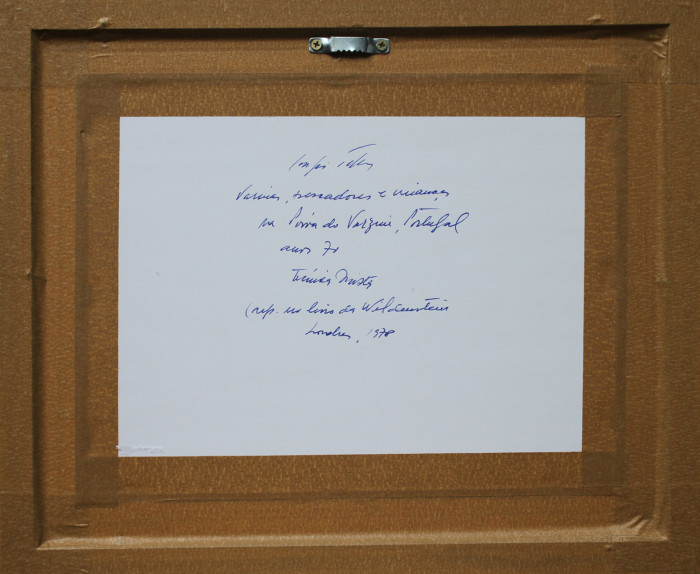 Varinas, pescadores e crianças
na Póvoa do Varzim, Portugal
anos 70
Técnica Mista
(rep. no livro da Wildenstein
Londres, 1978